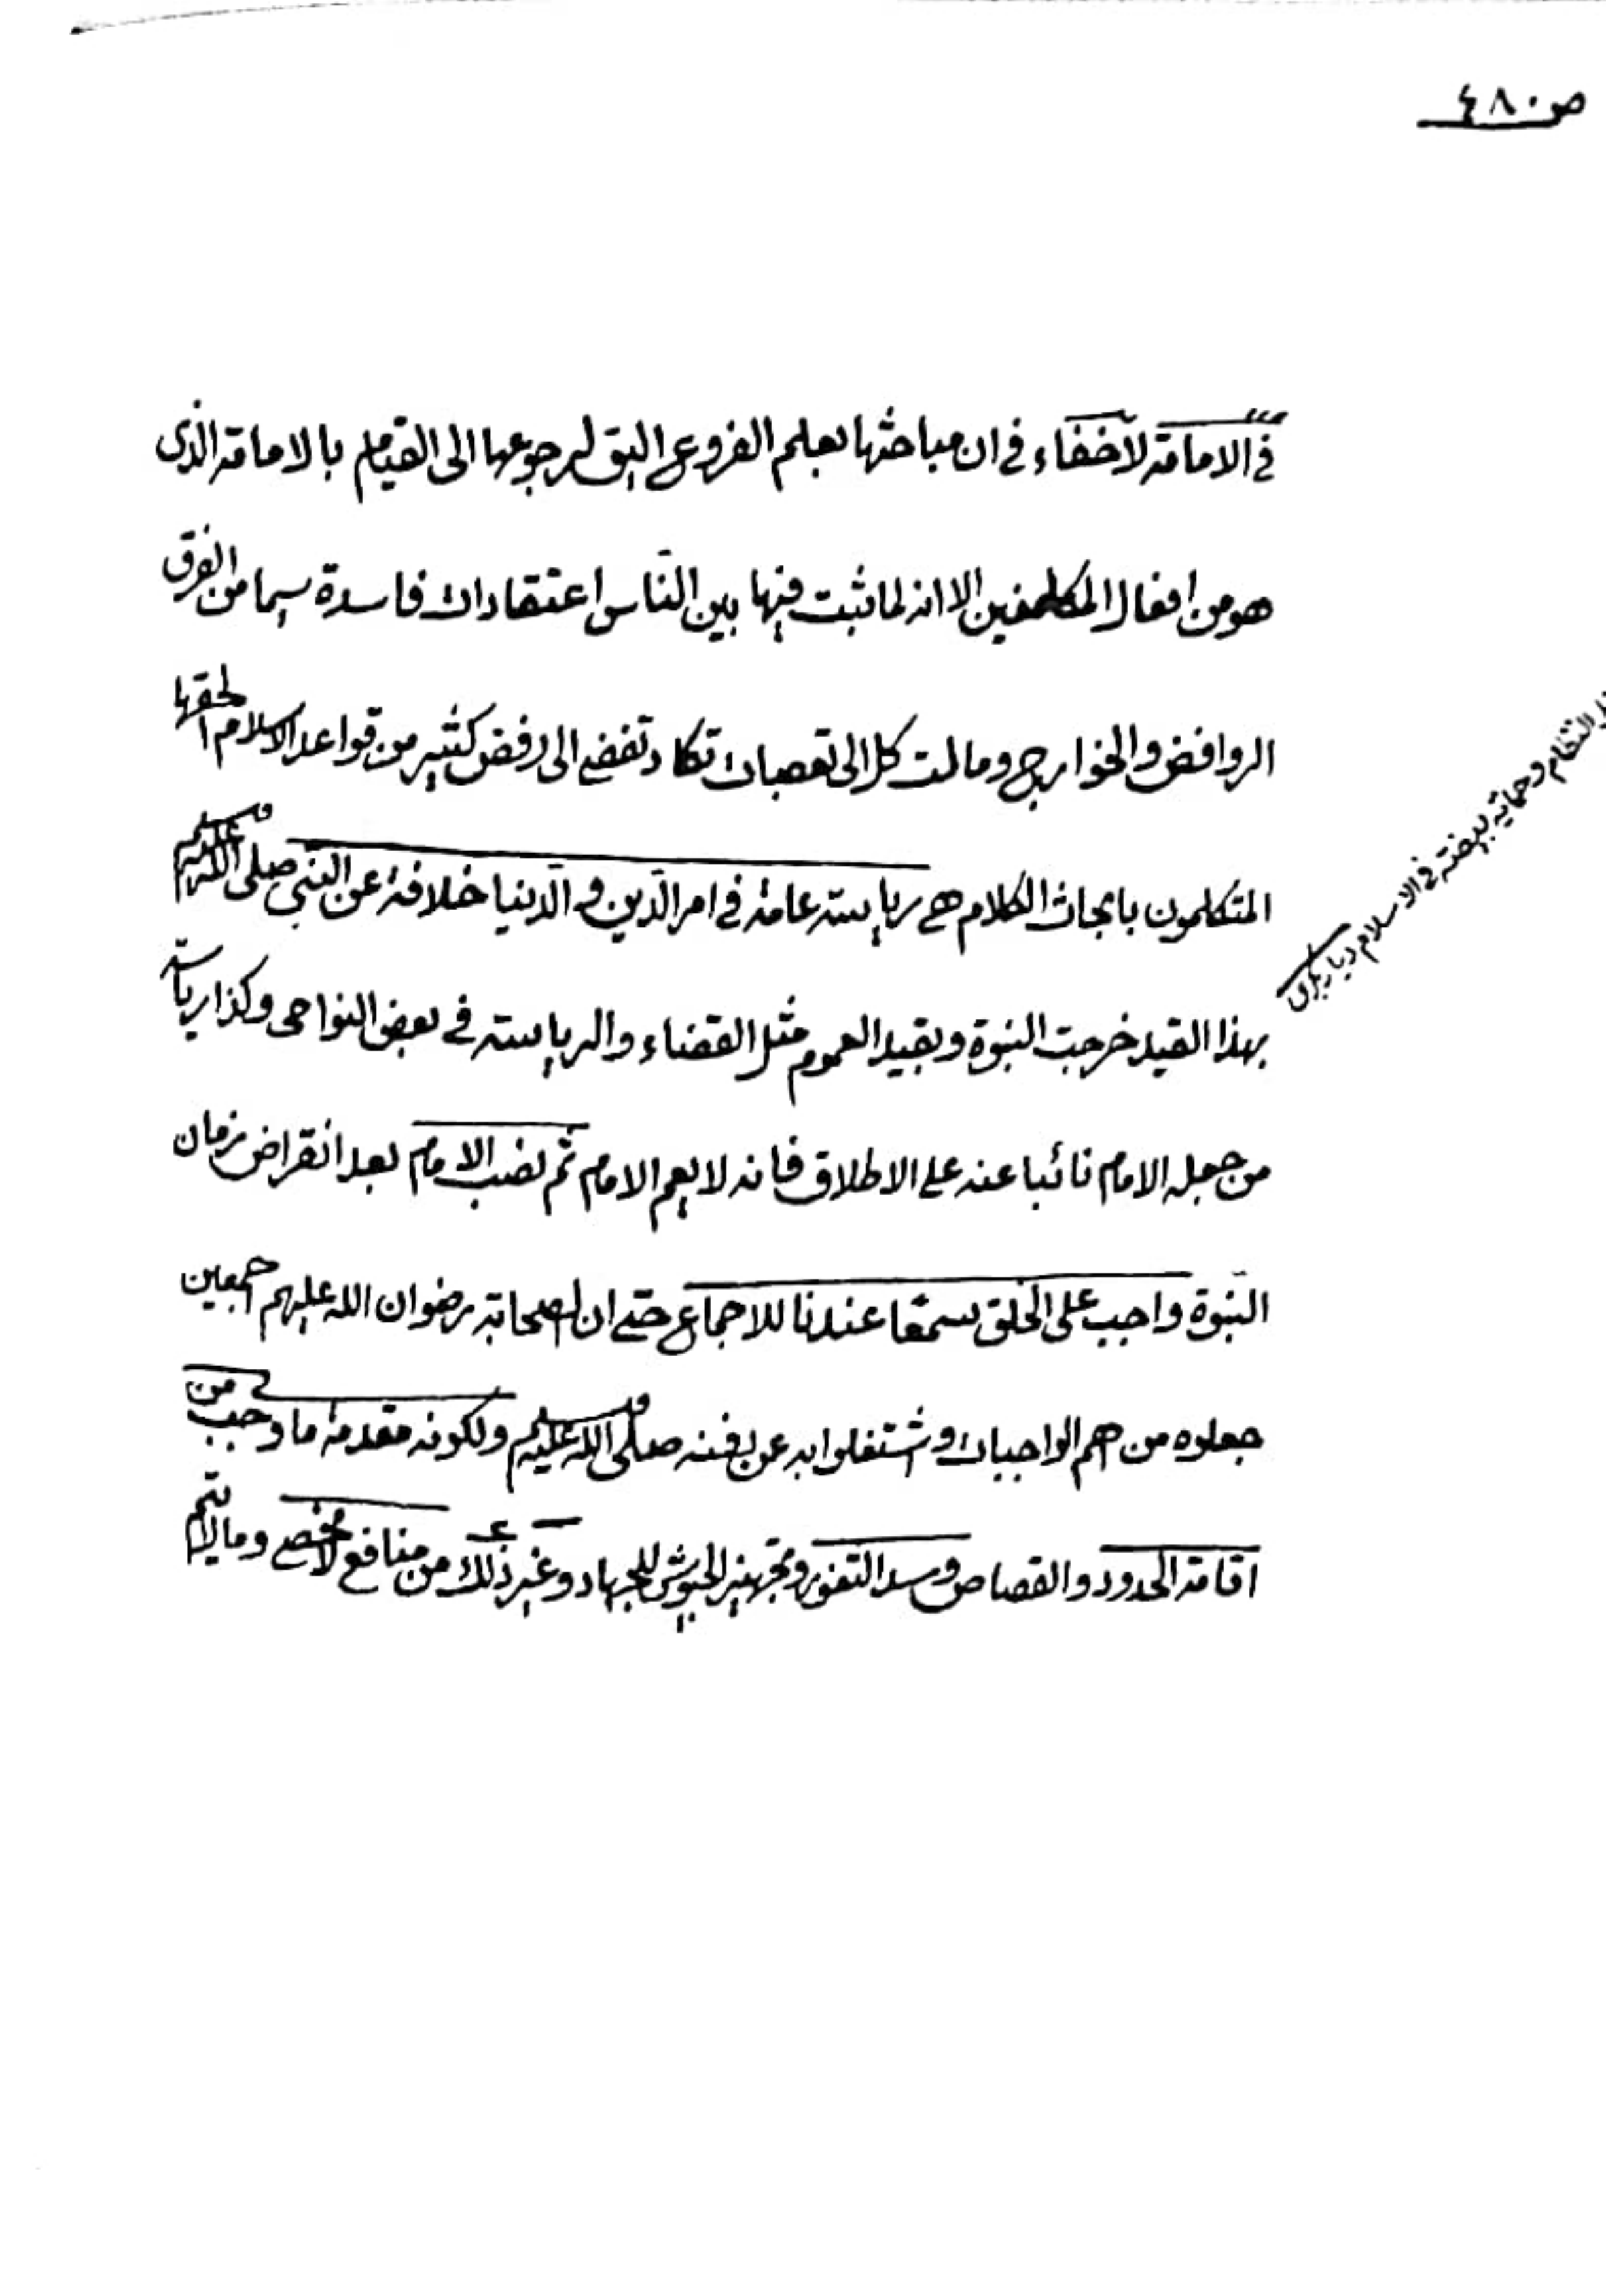 ص ٤٨٠
في الامامة لاخفاء في ان مباحثها بعلم الفروع اليق لرجوعها الى القيام بالامامة الذى
هو من افعال المكلفين الا انه لما ثبت فيها بين النّاس اعتقادات فاسدة سيما من الفرق
الروافض والخوارج ومالت كل الى تعصبات تكاد تفضي الى رفض كثير من قواعد الاسلام الحقها
المتكلمون بابحاث الكلام هي رياسة عامة في امر الدّين و الدّنيا خلافة عن النّبي صلى الله عليه وسلم
بهذا القيد خرجت النبوة وبقيد العموم مثل القضاء والرياسة في بعض النواحى وكذا رياسة
من جعله الامام نائبا عنه على الاطلاق فانه لا يعم الامام ثم نصب الامام بعد انقراض زمان
النبوة واجب على الخلق سمعًا عندنا للاجماع حتى ان الصحابة رضوان الله عليهم اجمعين
جعلوه من اهم الواجبات وشتغلوا به عن دفنه صلى الله عليه وسلم ولكونه مقدمة ما وجب من
اقامة الحدود والقصاص وسد الثغور وتجهيز الجيوش للجهاد وغير ذلك من منافع وما لا يتم
النظام وحماية بيضة في الاسلام